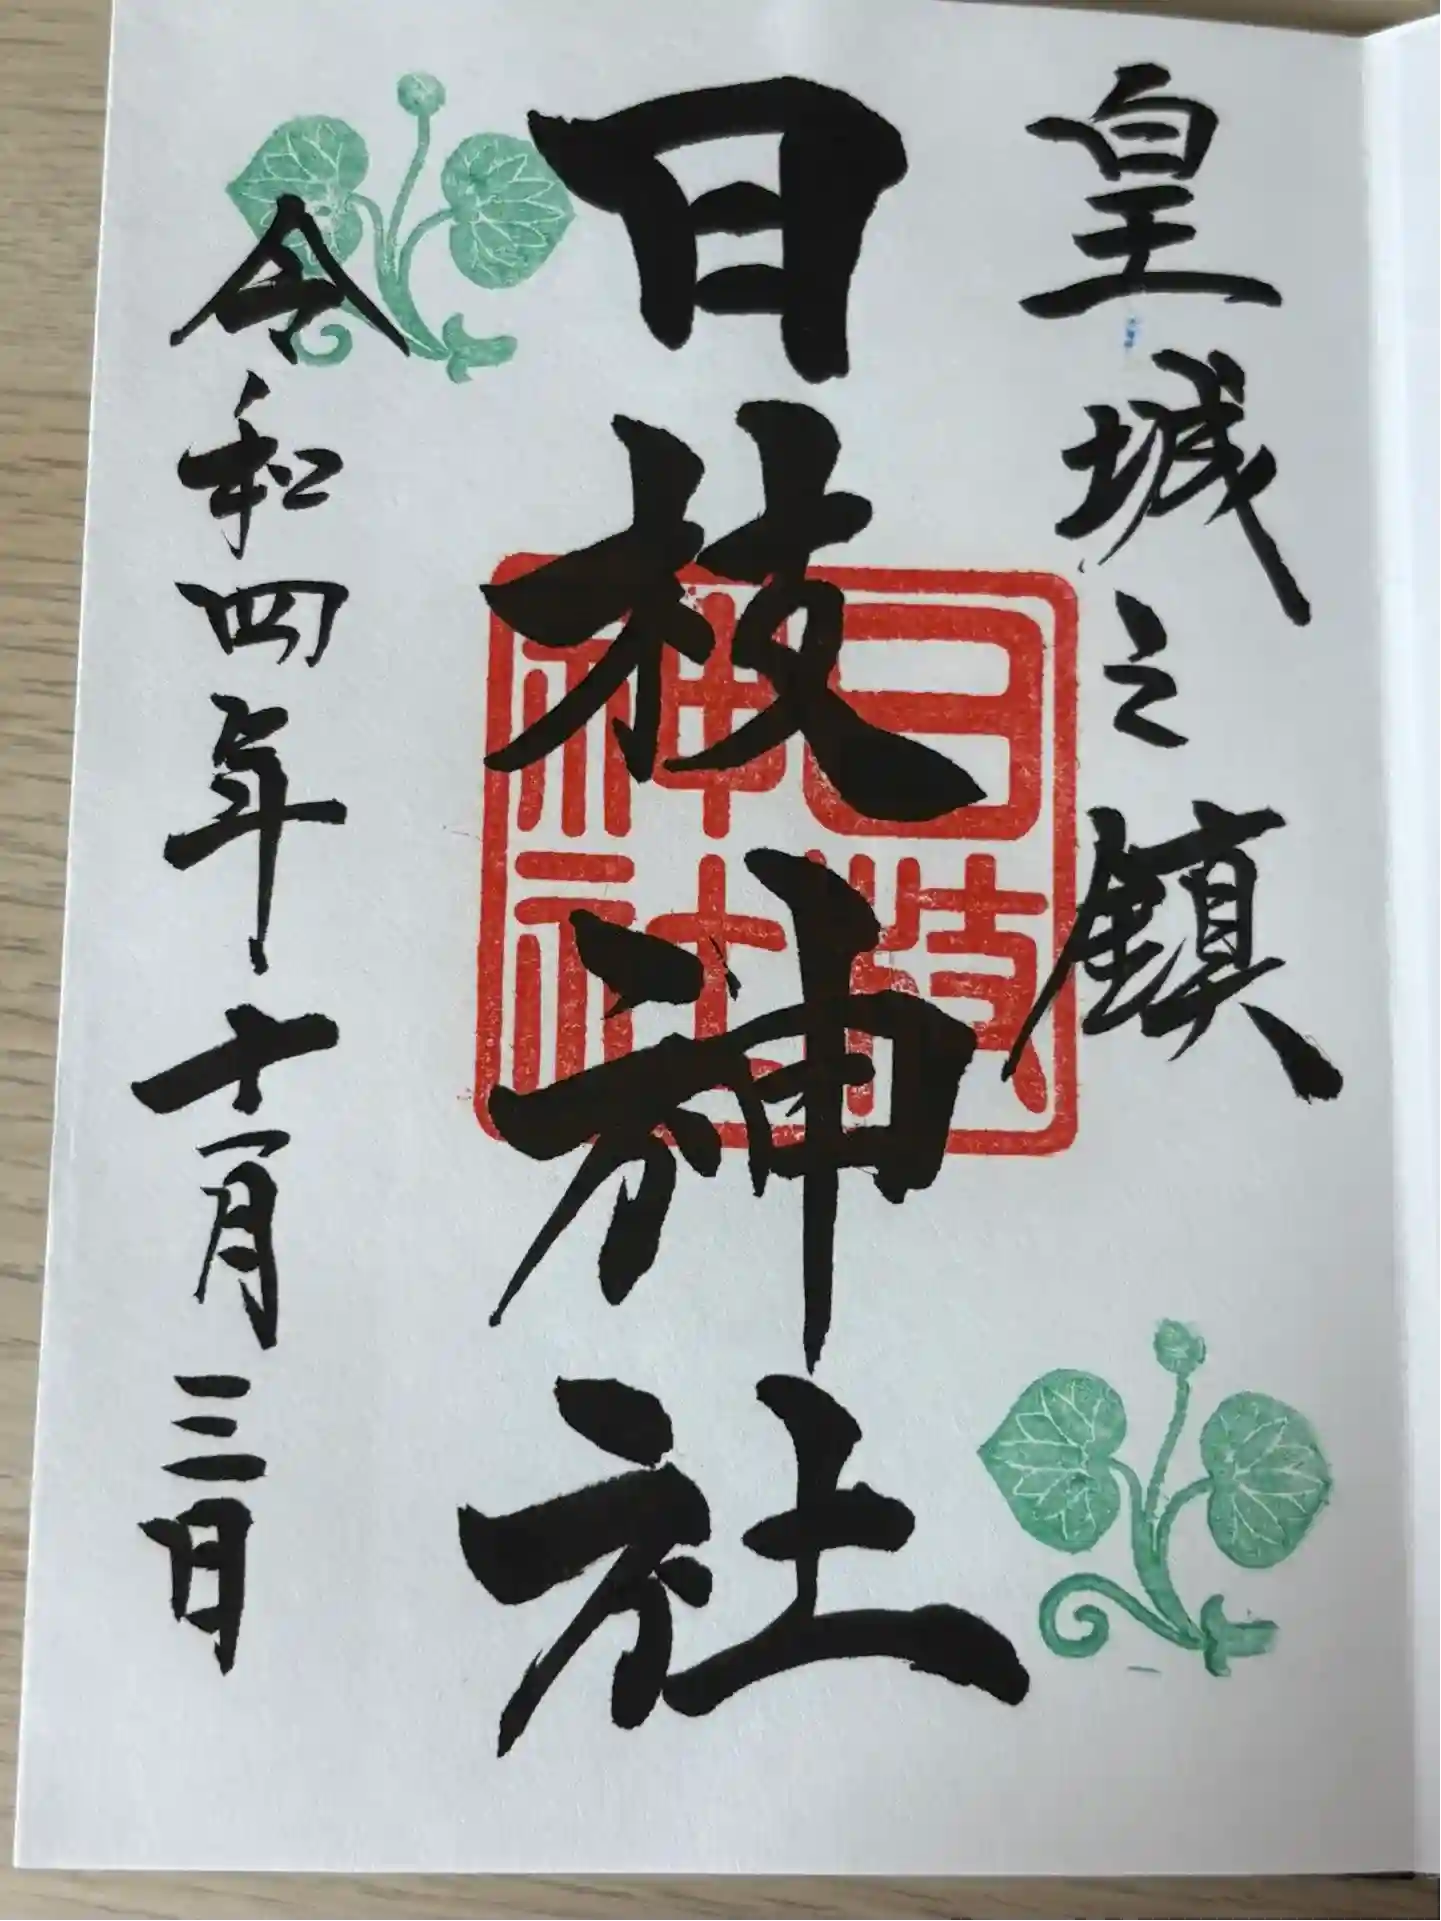 皇城之鎮
日枝神社
日枝神社
令和四年十一月三日